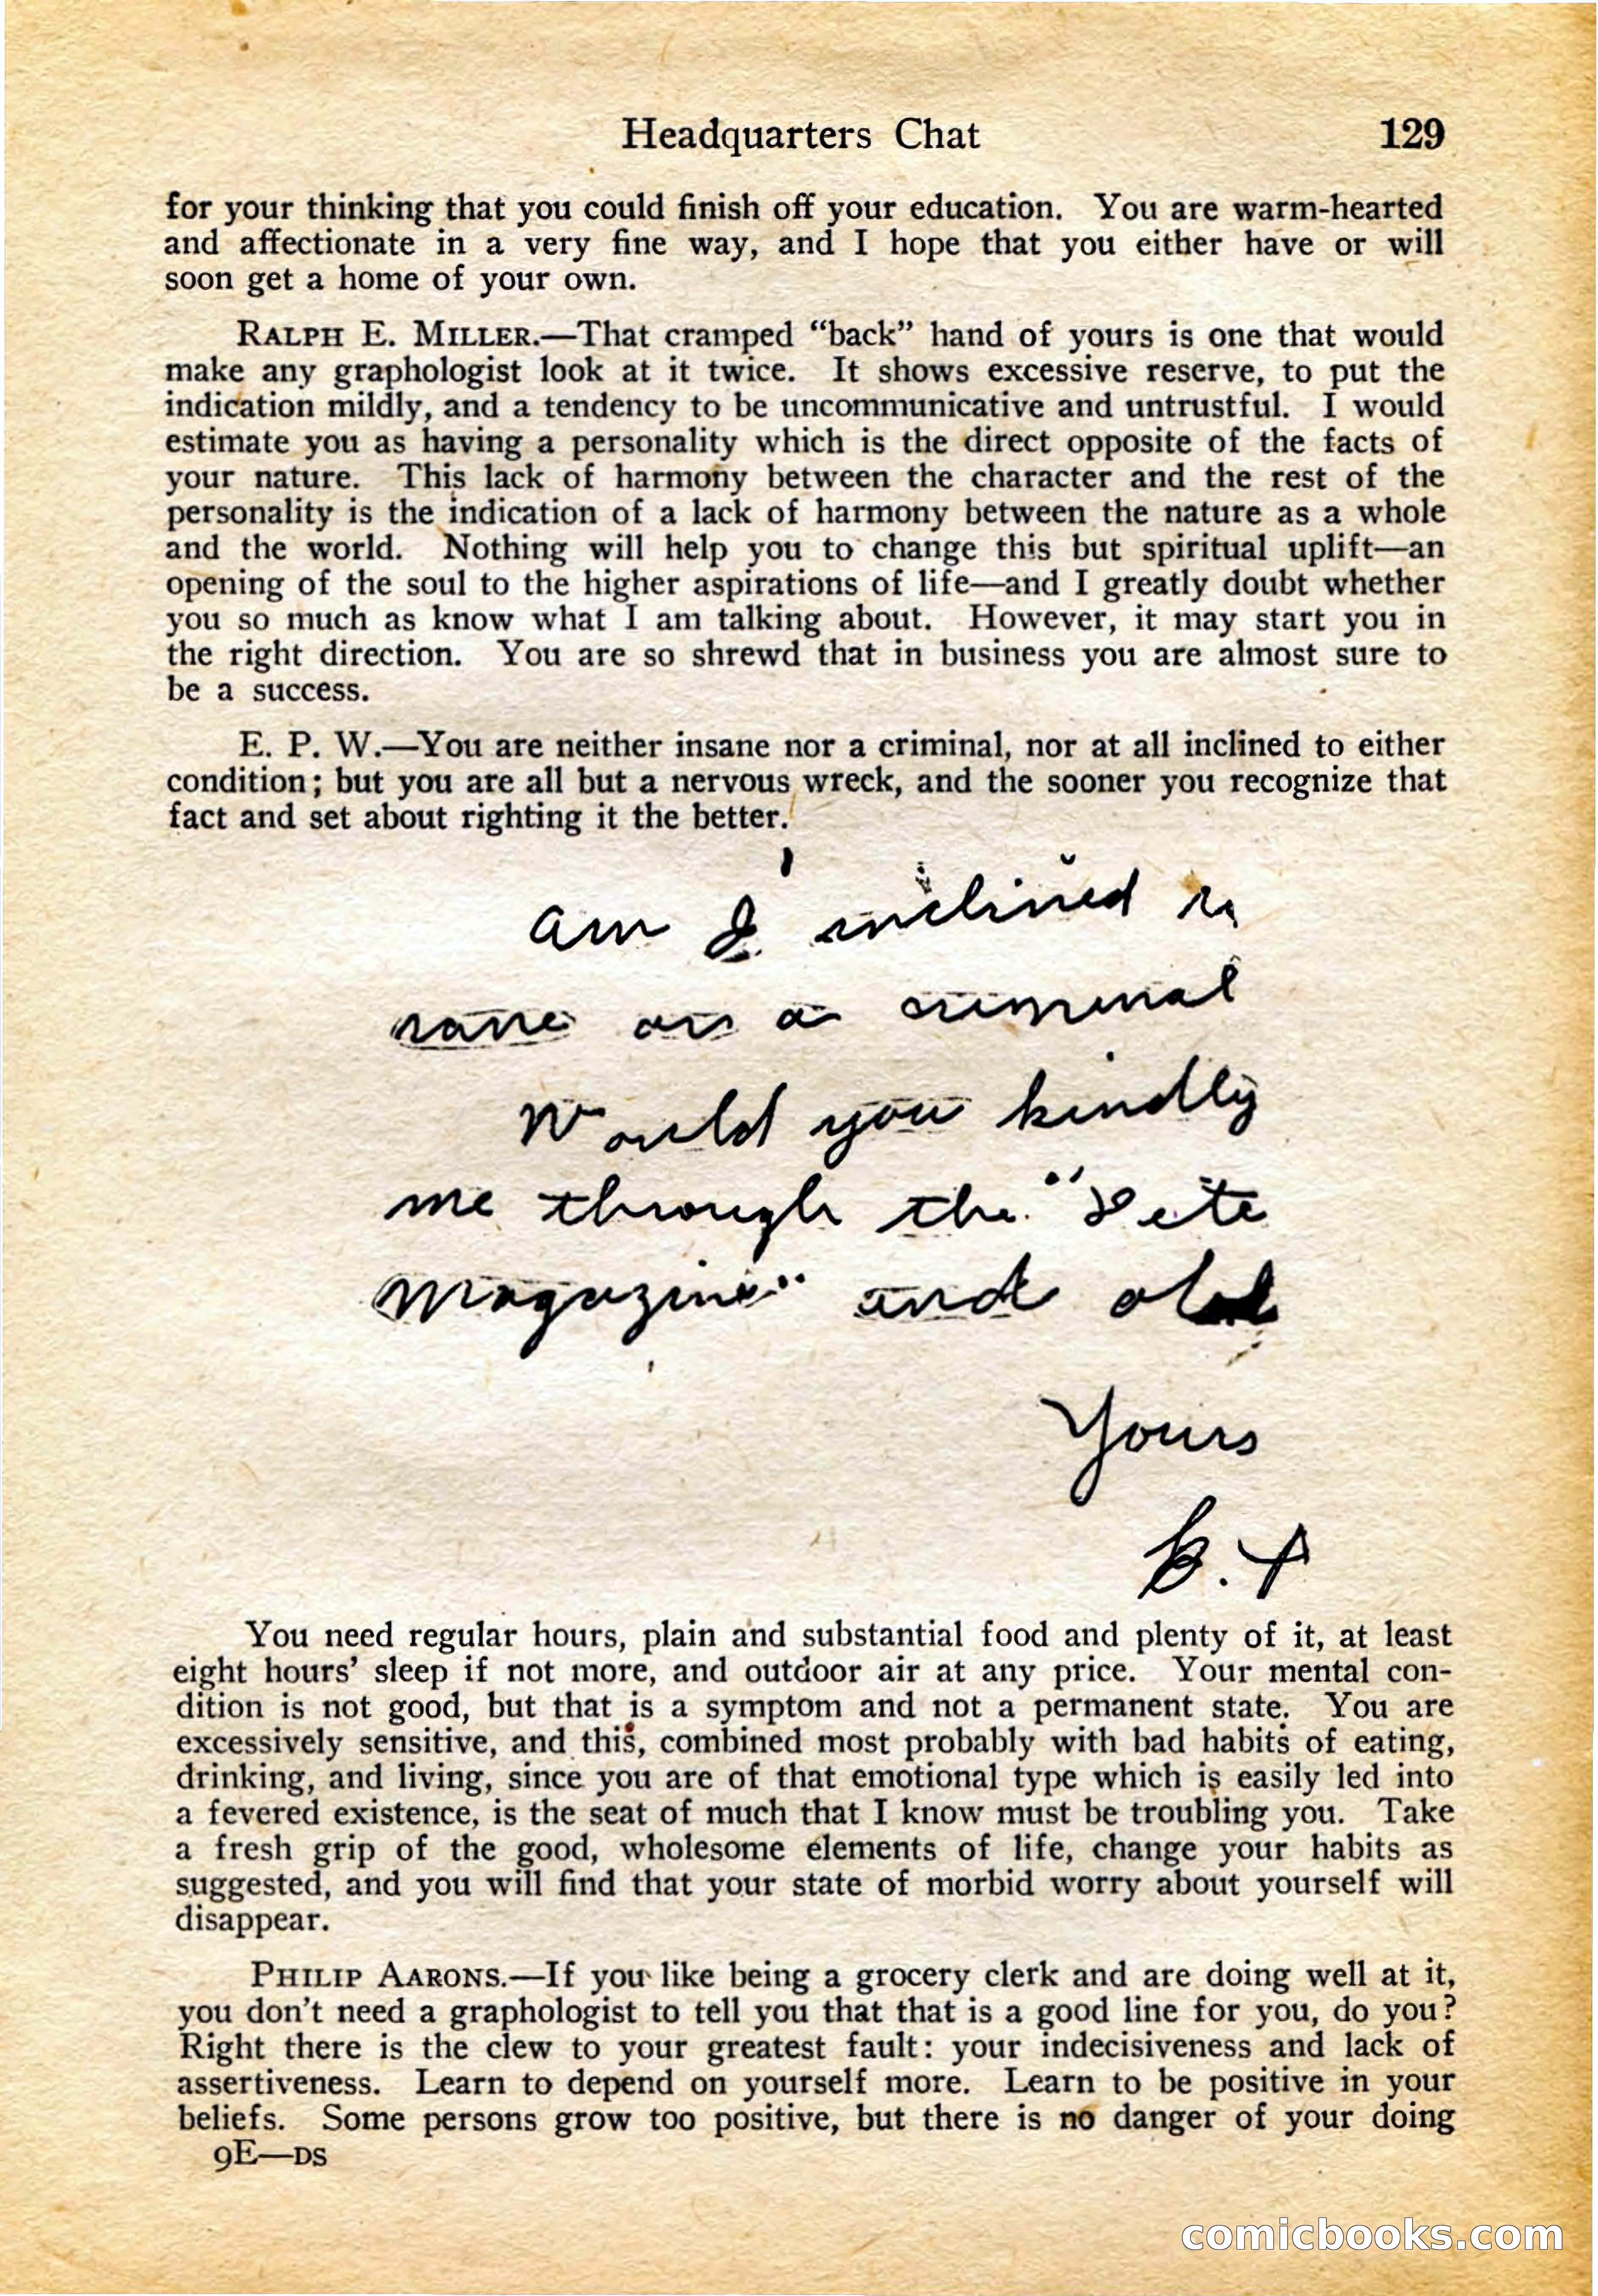 Headquarters Chat 129
for your thinking that you could finish off your education. You are warm-hearted
and affectionate in a very fine way, and I hope that you either have or will
soon get a home of your own.
RALPH E. MILLER.—That cramped “back” hand of yours is one that would
make any graphologist look at it twice. It shows excessive reserve, to put the
indication mildly, and a tendency to be uncommunicative and untrustful. I would
estimate you as having a personality which is the direct opposite of the facts of
your nature. This lack of harmony between the character and the rest of the
personality is the indication of a lack of harmony between the nature as a whole
and the world. Nothing will help you to change this but spiritual uplift—an
opening of the soul to the higher aspirations of life—and I greatly doubt whether
you so much as know what I am talking about. However, it may start you in
the right direction. You are so shrewd that in business you are almost sure to
be a success.
E. P. W.—You are neither insane nor a criminal, nor at all inclined to either
condition; but you are all but a nervous wreck, and the sooner you recognize that
fact and set about righting it the better.
am I inclined
sane or a criminal
Would you kindly
me through the "Dete
Magazine" and
Yours
You need regular hours, plain and substantial food and plenty of it, at least
eight hours’ sleep if not more, and outdoor air at any price. Your mental con-
dition is not good, but that is a symptom and not a permanent state. You are
excessively sensitive, and this, combined most probably with bad habits of eating,
drinking, and living, since you are of that emotional type which is easily led into
a fevered existence, is the seat of much that I know must be troubling you. Take
a fresh grip of the good, wholesome elements of life, change your habits as
suggested, and you will find that your state of morbid worry about yourself will
disappear.
PHILIP AARONS.—If you like being a grocery clerk and are doing well at it,
you don’t need a graphologist to tell you that that is a good line for you, do you?
Right there is the clew to your greatest fault: your indecisiveness and lack of
assertiveness. Learn to depend on yourself more. Learn to be positive in your
beliefs. Some persons grow too positive, but there is no danger of your doing
9E—DS
comicbooks.com